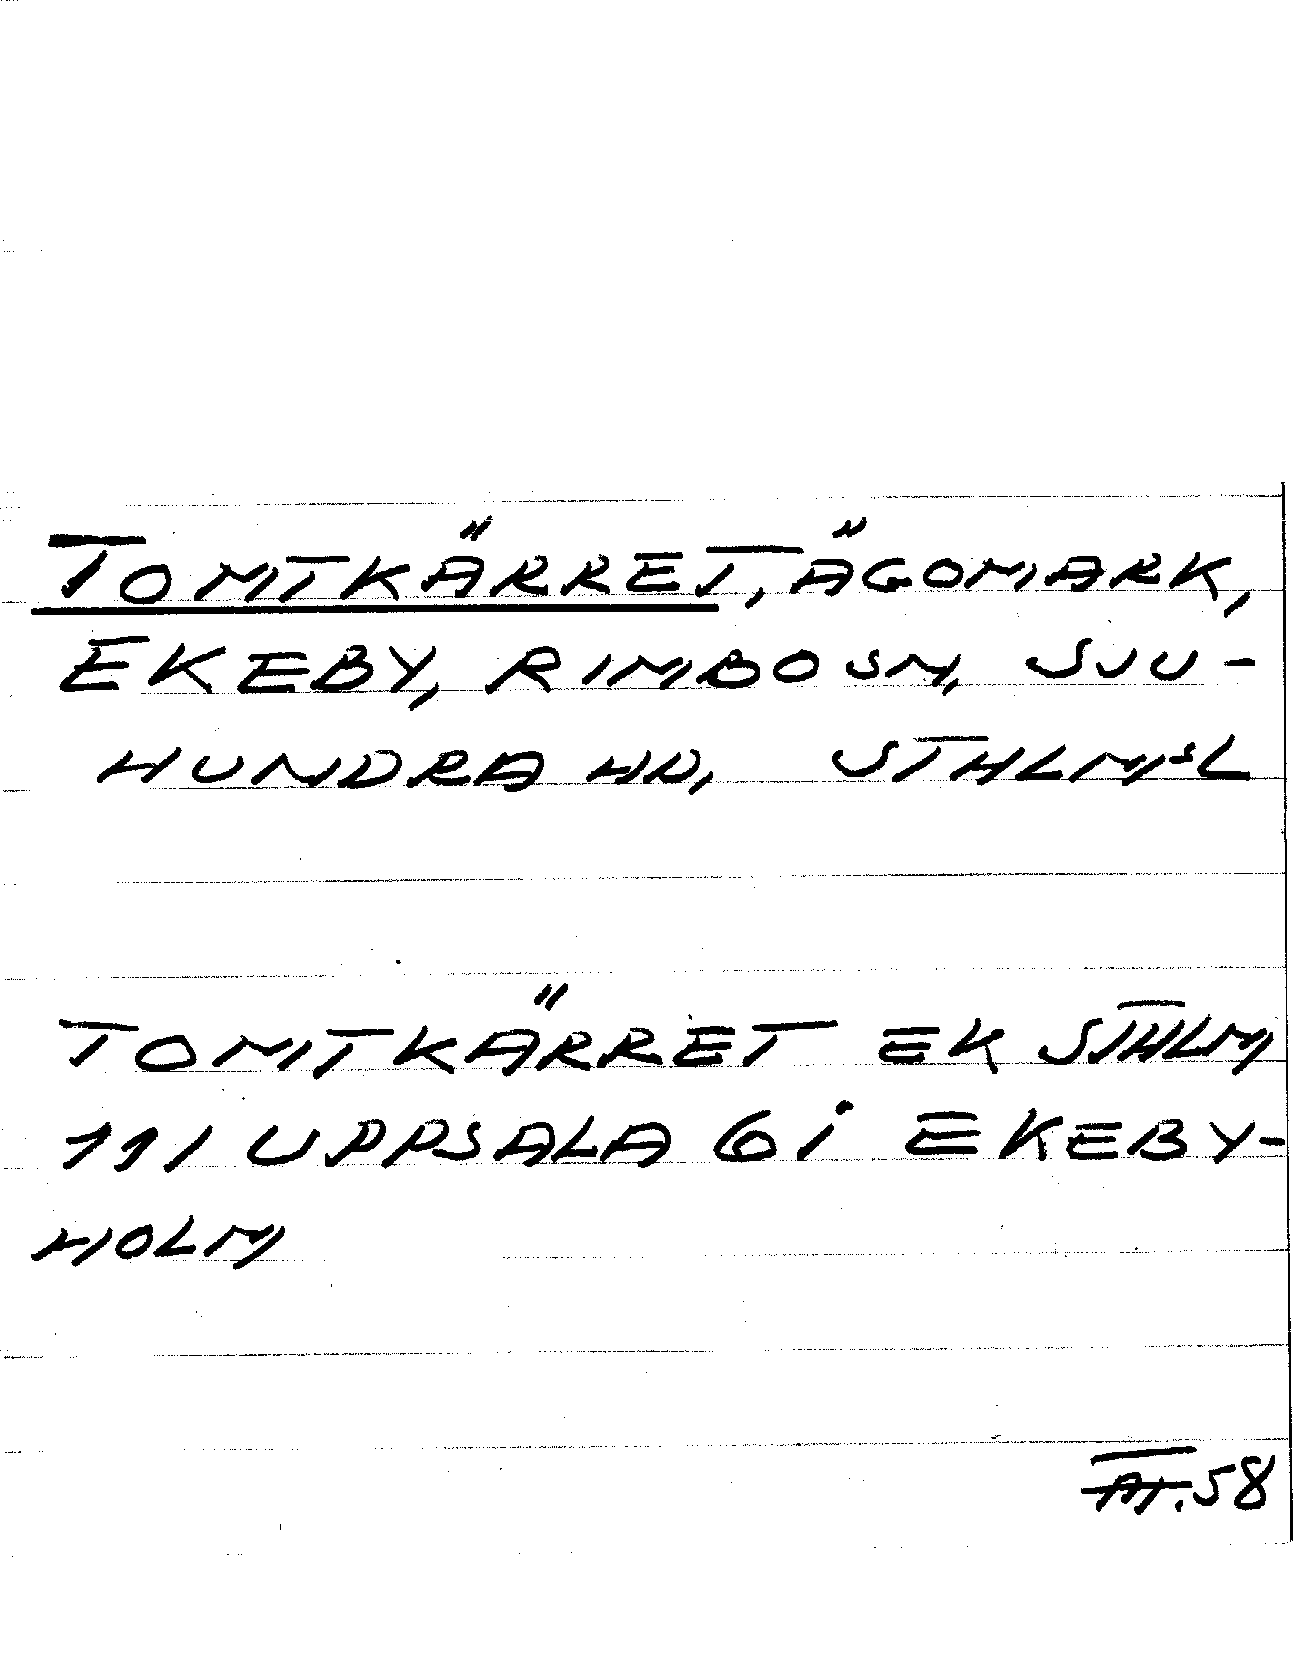 TOMTKÄRRET, ÄGOMARK,
EKEBY, RIMBO SN, SJU-
HUNDRA HD, STHLMSL
TOMTKÄRRET EK STHLM
111 UPPSALA 6i EKEBY-
HOLM
58